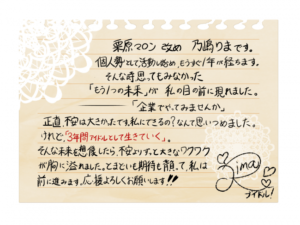 栗原マロン 改め 乃嶋りまです。
個人勢として活動し始め、もうすぐ1年が経ちます。
そんな時思ってもみなかった
「もう1つの未来」が 私の目の前に現れました。
――「企業でやってみませんか」
正直不安は大きかったです。私にできるの？なんて思いつめました。
けれど、「3年間アイドルとして生きていく。」
そんな未来を想像したら、不安よりずっと大きなワクワク
が胸に溢れました。とまどいも期待も抱いて、私は
前に進みます。応援よろしくお願いします!!
Rima
アイドル!